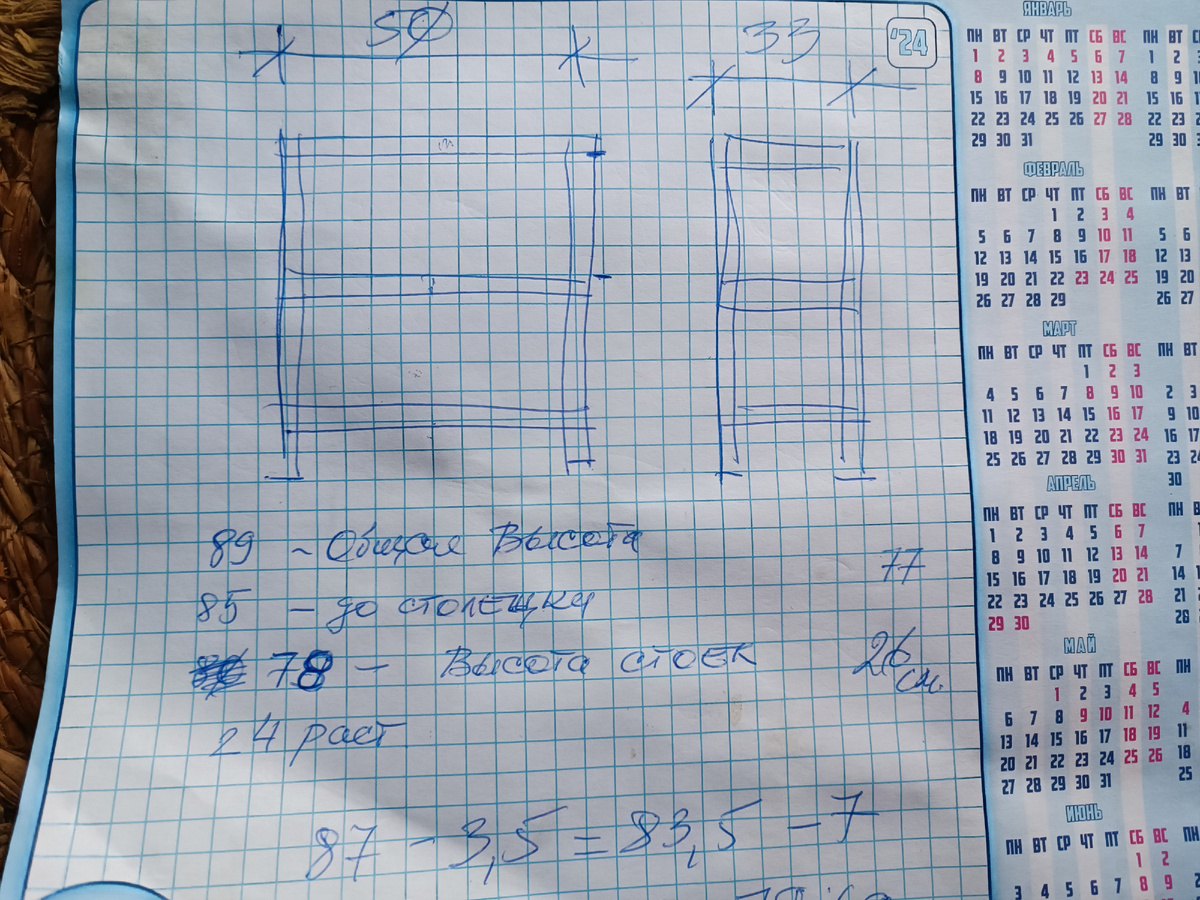 50
33
'24
89 - Общая Высота
85 - до столещки
78 - Высота стоек
24 раст.
77
26 см.
87 - 3,5 = 83,5 - 7
ЯНВАРЬ
ПН ВТ СР ЧТ ПТ СБ ВС ПН ВТ
1 2 3 4 5 6 7 1 2
8 9 10 11 12 13 14 8 9
15 16 17 18 19 20 21 15 16
22 23 24 25 26 27 28 22 23
29 30 31 29 30
ФЕВРАЛЬ
ПН ВТ СР ЧТ ПТ СБ ВС ПН ВТ
1 2 3 4
5 6 7 8 9 10 11 5 6
12 13 14 15 16 17 18 12 13
19 20 21 22 23 24 25 19 20
26 27 28 29 26 27
МАРТ
ПН ВТ СР ЧТ ПТ СБ ВС ПН
1 2 3
4 5 6 7 8 9 10 2 3
11 12 13 14 15 16 17 9 10
18 19 20 21 22 23 24 16 17
25 26 27 28 29 30 31 23
30
АПРЕЛЬ
ПН ВТ СР ЧТ ПТ СБ ВС ПН
1 2 3 4 5 6 7
8 9 10 11 12 13 14 7
15 16 17 18 19 20 21 14
22 23 24 25 26 27 28 21
29 30 28
МАЙ
ПН ВТ СР ЧТ ПТ СБ ВС ПН
1 2 3 4 5
6 7 8 9 10 11 12 4
13 14 15 16 17 18 19 11
20 21 22 23 24 25 26 18
27 28 29 30 31 25
ИЮНЬ
ПН ВТ СР ЧТ ПТ СБ ВС ПН
1 2
3 4 5 6 7 8 9